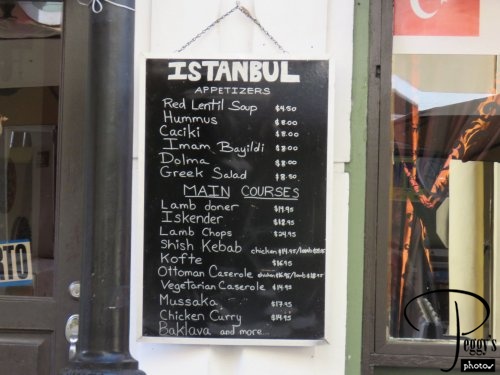 ISTANBUL
APPETIZERS
Red Lentil Soup $4.50
Hummus $8.00
Caciki $8.00
Imam Bayildi $8.00
Dolma $8.00
Greek Salad $8.50
MAIN COURSES
Lamb doner $14.95
Iskender $18.95
Lamb Chops $24.95
Shish Kebab chicken $14.95/lamb
Kofte $16.95
Ottoman Caserole chicken $16.95/lamb $18.95
Vegetarian Caserole $14.95
Mussaka $17.95
Chicken Curry $14.95
Baklava and more...
Peggy's
photos